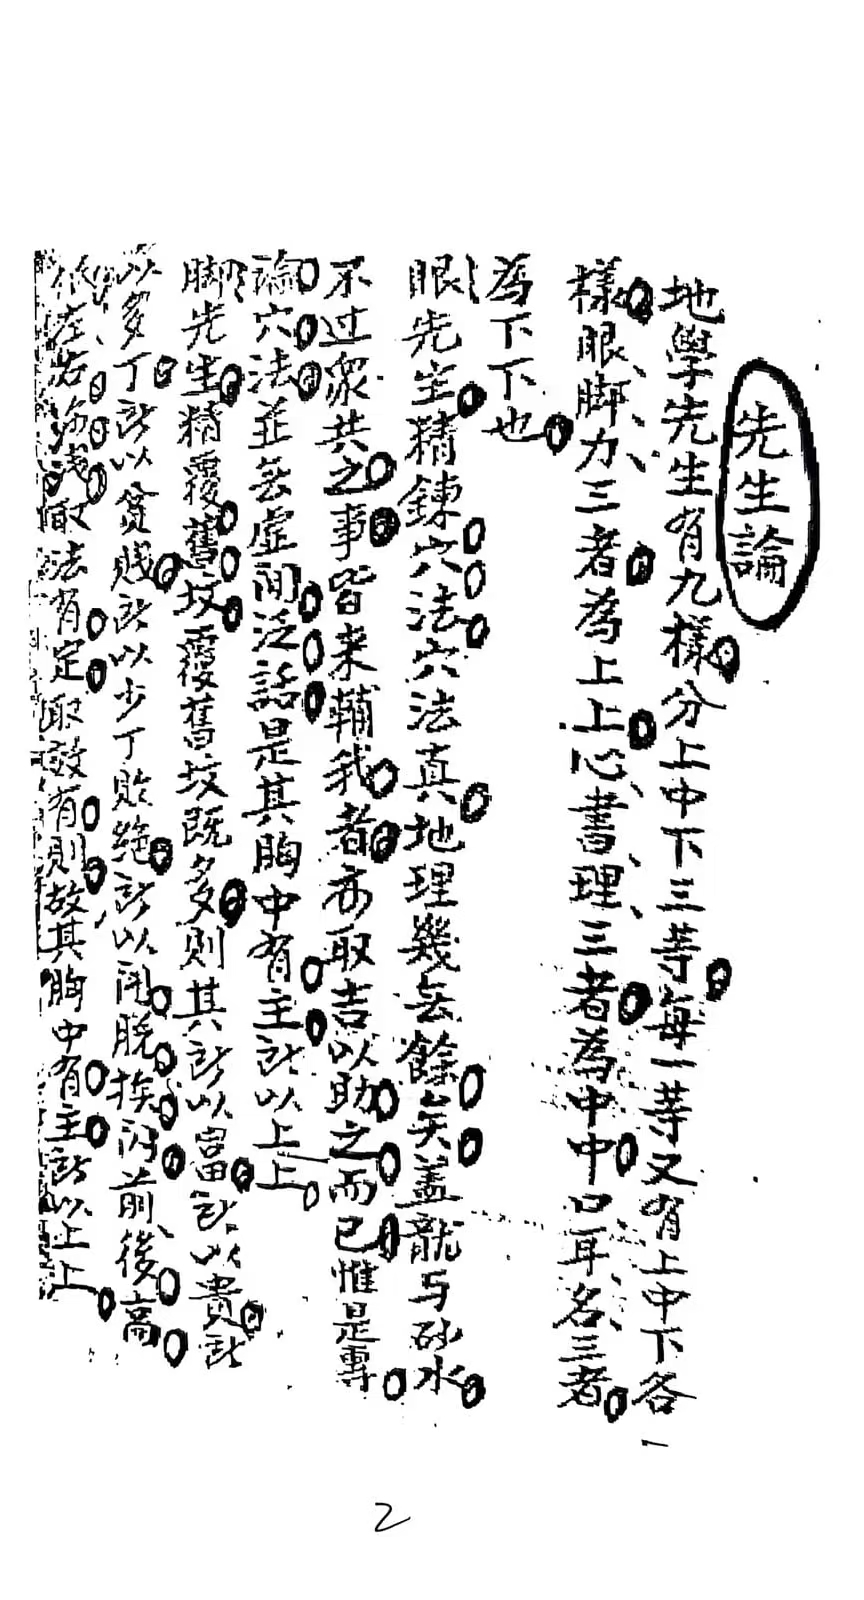 先生論
地學先生有九樣分上中下三等每一等又有上中下各一
樣眼脚力三者為上上心書理三者為中中口耳名三者
為下下也
眼先生精鍊穴法穴法真地理幾無餘矣盖龍与砂水
不过眾共之事皆来輔我者亦取吉以助之而已惟是專
論穴法並無虛閒泛話是其胸中有主所以上上
脚先生精覆舊坟覆舊坟既多則其所以富所以貴所
以多丁所以貧賎所以少丁敗絕所以前後高
低左右深淺取法有定取效有則故其胸中有主所以上上
2